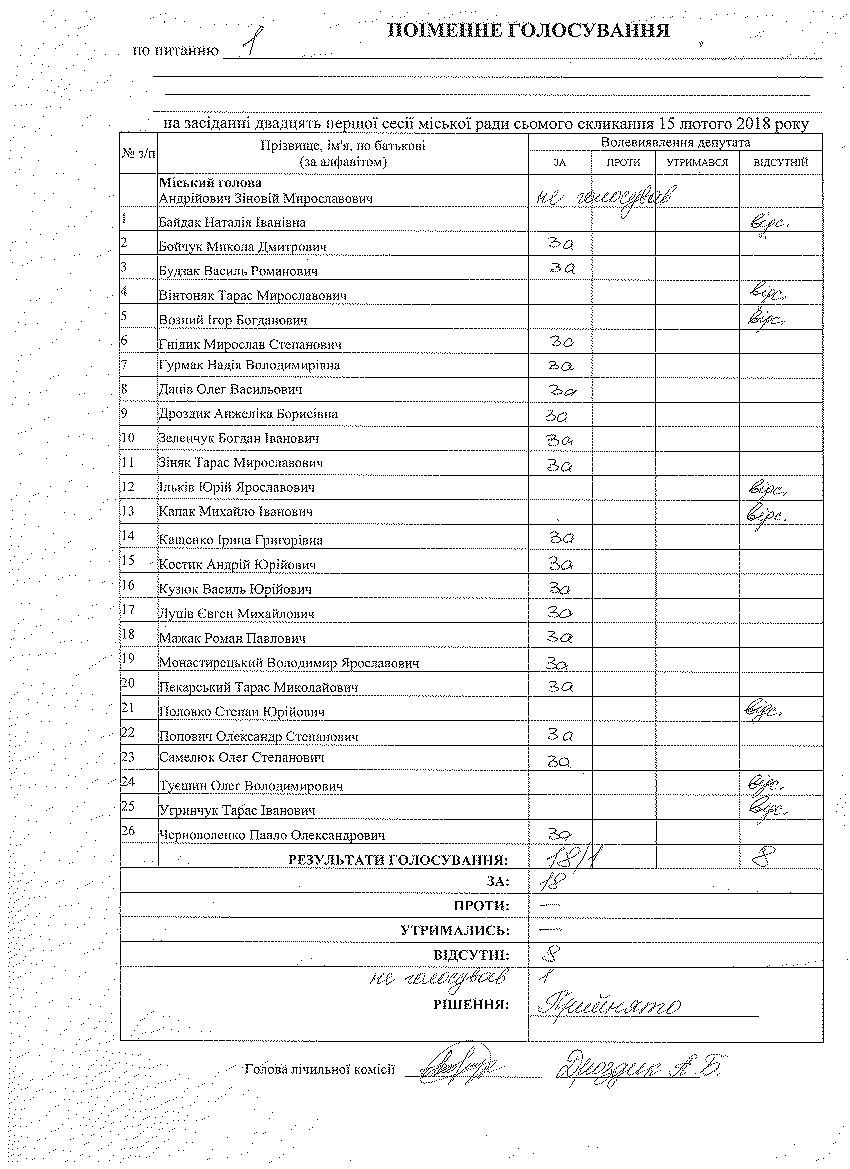 ПОІМЕННЕ ГОЛОСУВАННЯ
по питанню 1
на засіданні двадцять першої сесії міської ради сьомого скликання 15 лютого 2018 року
№ з/п Прізвище, ім'я, по батькові (за алфавітом) Волевиявлення депутата
ЗА ПРОТИ УТРИМАВСЯ ВІДСУТНІЙ
Міський голова
Андрійович Зіновій Мирославович не голосував
1 Байдак Наталія Іванівна відс.
2 Бойчук Микола Дмитрович За
3 Будзак Василь Романович За
4 Вінтоняк Тарас Мирославович відс.
5 Возний Ігор Богданович відс.
6 Гнідик Мирослав Степанович За
7 Гурмак Надія Володимирівна За
8 Данів Олег Васильович За
9 Дроздик Анжеліка Борисівна За
10 Зеленчук Богдан Іванович За
11 Зіняк Тарас Мирославович За
12 Ільків Юрій Ярославович відс.
13 Капак Михайло Іванович відс.
14 Кащенко Ірина Григорівна За
15 Костик Андрій Юрійович За
16 Кузюк Василь Юрійович За
17 Луців Євген Михайлович За
18 Мажак Роман Павлович За
19 Монастирецький Володимир Ярославович За
20 Пекарський Тарас Миколайович За
21 Половко Степан Юрійович відс.
22 Попович Олександр Степанович За
23 Самелюк Олег Степанович За
24 Туєшин Олег Володимирович відс.
25 Угринчук Тарас Іванович відс.
26 Черноволенко Павло Олександрович За
РЕЗУЛЬТАТИ ГОЛОСУВАННЯ: 18/1 8
ЗА: 18
ПРОТИ: —
УТРИМАЛИСЬ: —
ВІДСУТНІ: 8
не голосував 1
РІШЕННЯ: Прийнято
Голова лічильної комісії Дроздик А.Б.